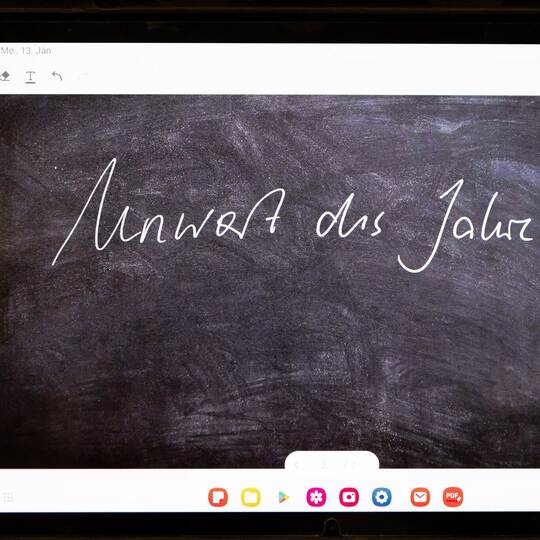 Mo., 13. Jan.
T
Unwort des Jahre
2 / 2
PDF